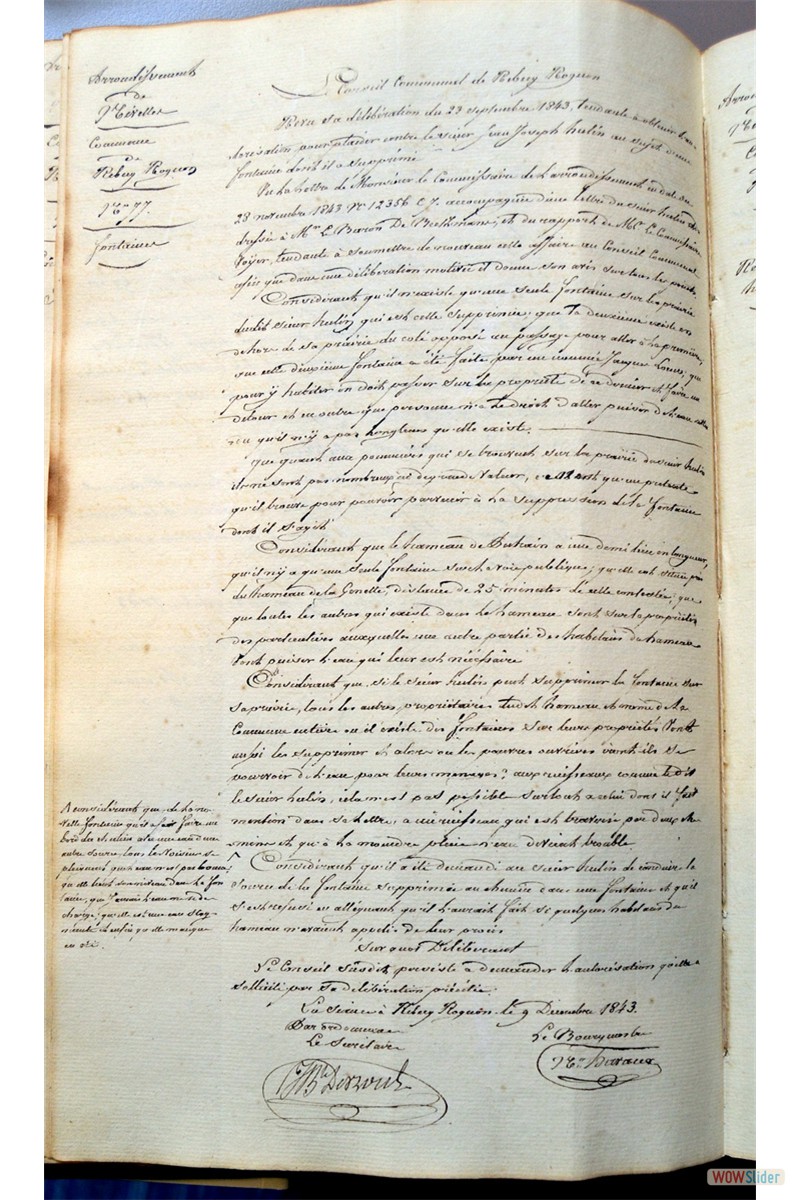 Arrondissement
de
Nivelles
Commune
de
Rebecq Rognon
N° 77
fontaines
Le Conseil Communal de Rebecq Rognon
Revu sa délibération du 23 septembre 1843, tendante à obtenir l'au
torisation pour plaider contre le sieur Jean Joseph hulin au sujet d'une
fontaine dont il a supprimé
Vu la lettre de Monsieur le Commissaire de l'arrondissement en date du
28 novembre 1843 N° 12356 accompagnée d'une lettre du sieur hulin a
dressée à Mr Le Baron De et du rapport de Mr Le Commissaire
Voyer, tendante à soumettre de nouveau cette affaire au Conseil Communal
afin que dans une délibération motivée il donne son avis sur tous les points.
Considérant qu'il n'existe qu'une seule fontaine sur la prairie
dudit sieur hulin qui est celle supprimée; que la deuxième existe en
dehors de sa prairie du coté opposé au passage pour aller à la première,
que cette deuxième fontaine a été faite par un nommé Jacques que
pour y habiter on doit passer sur la propriété de ce dernier et faire un
detour et en outre que personne n'a le droit d'aller puiser de l'eau
vu qu'il n'y a pas longtems qu'elle existe.
Que quant aux pommiers qui se trouvent sur la prairie du sieur hulin
ils ne sont pas nombreux ni de grande valeur, ce n'est qu'un prétexte
qu'il trouve pour pouvoir parvenir à la suppression de la fontaine
dont il s'agit
Considérant que le hameau de a une demi lieue en longueur,
qu'il n'y a qu'une seule fontaine sur la voie publique; qu'elle est située près
du hameau de la Genette, distance de 25 minutes de celle contestée; que
que toutes les autres qui existe dans le hameau sont sur les propriétés
des particulières auxquelles une autre partie des habitans du hameau
vont puiser l'eau qui leur est nécessaire
Considérant que si le sieur hulin peut supprimer la fontaine sur
sa prairie, tous les autres propriétaires tant du hameau et même de la
Commune entière où il existe des fontaines sur leurs propriétés vont
aussi les supprimer et alors ou les pauvres ouvriers iront ils se
pourvoir de l'eau pour leurs menages? aux ruisseaux comme le dit
le sieur hulin, cela n'est pas possible surtout a celui dont il fait
mention dans sa lettre, a un ruisseau qui est traversé par deux che
mins et qu'à la moindre pluie l'eau devient trouble.
^ Considérant qu'il a été demandé au sieur hulin de conduire la
source de la fontaine supprimée au chemin dans une fontaine et qu'il
s'est refusé en alléguant qu'il l'aurait fait si quelques habitans du
hameau n'avaient de leur procès
Sur quoi Délibérant
Le Conseil susdit persiste a demander l'autorisation qu'elle
sollicité par sa délibération précitée.
En séance à Rebecq Rognon, le 9 Decembre 1843.
Par ordonnance
Le Secrétaire
Le Bourgmestre
^ considérant que de la nou
velle fontaine qu'il a fait faire au
bord du chemin avec une eau d'une
autre source, tous les voisins se
plaignent que l'eau n'est pas bonne;
qu'elle tient son niveau dans la fon
taine, que jamais l'eau n'a de
charge, qu'elle est une eau stag
nante et enfin qu'elle manque
en été.
WOWSlider